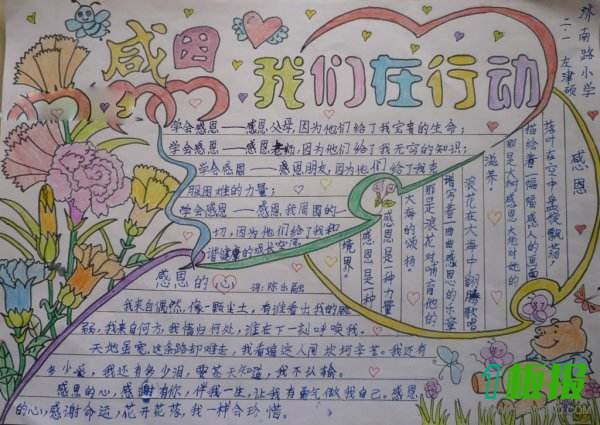 感恩
我们在行动
济南路小学
二·一 左津硕
学会感恩——感恩父母,因为他们给了我宝贵的生命;
学会感恩——感恩老师,因为他们给了我无穷的知识;
学会感恩——感恩朋友,因为他们给了我克
服困难的力量;
学会感恩——感恩我周围的一
切,因为他们给了我和
谐健康的成长空间
感恩
落叶在空中盘旋飘荡,
描绘着一幅幅感人的画面
那是大树感恩大地对她的
滋养。
浪花在大海中翻腾歌唱
谱写着一曲曲感恩的乐章
那是浪花对哺育他的
大海的颂扬。
感恩是一种力量
感恩是一种
境界。
感恩的心
词:陈乐融
我来自偶然,像一颗尘土,有谁看出我的脆
弱,我来自何方,我情归何处,谁在下一刻呼唤我。
天地虽宽,这条路却难走,我看遍这人间坎坷辛苦。我还有
多少爱,我还有多少泪,要苍天知道,我不认输。
感恩的心,感谢有你,伴我一生,让我有勇气做我自己。感恩
的心,感谢命运,花开花落,我一样会珍惜。
板报
WWW.BANBAO.COM